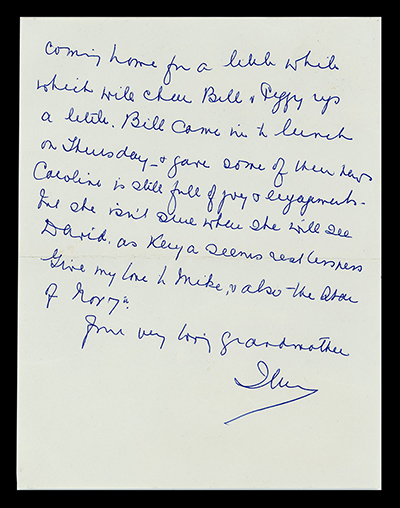 coming home for a little while
which will cheer Bill & Peggy up
a little. Bill came in to lunch
on Thursday - & gave some of their news
Caroline is still full of joy & engagements -
but she isn't sure when she will see
David, as Kenya seems restlessness
Give my love to Mike, & also the
of
Your very loving grandmother